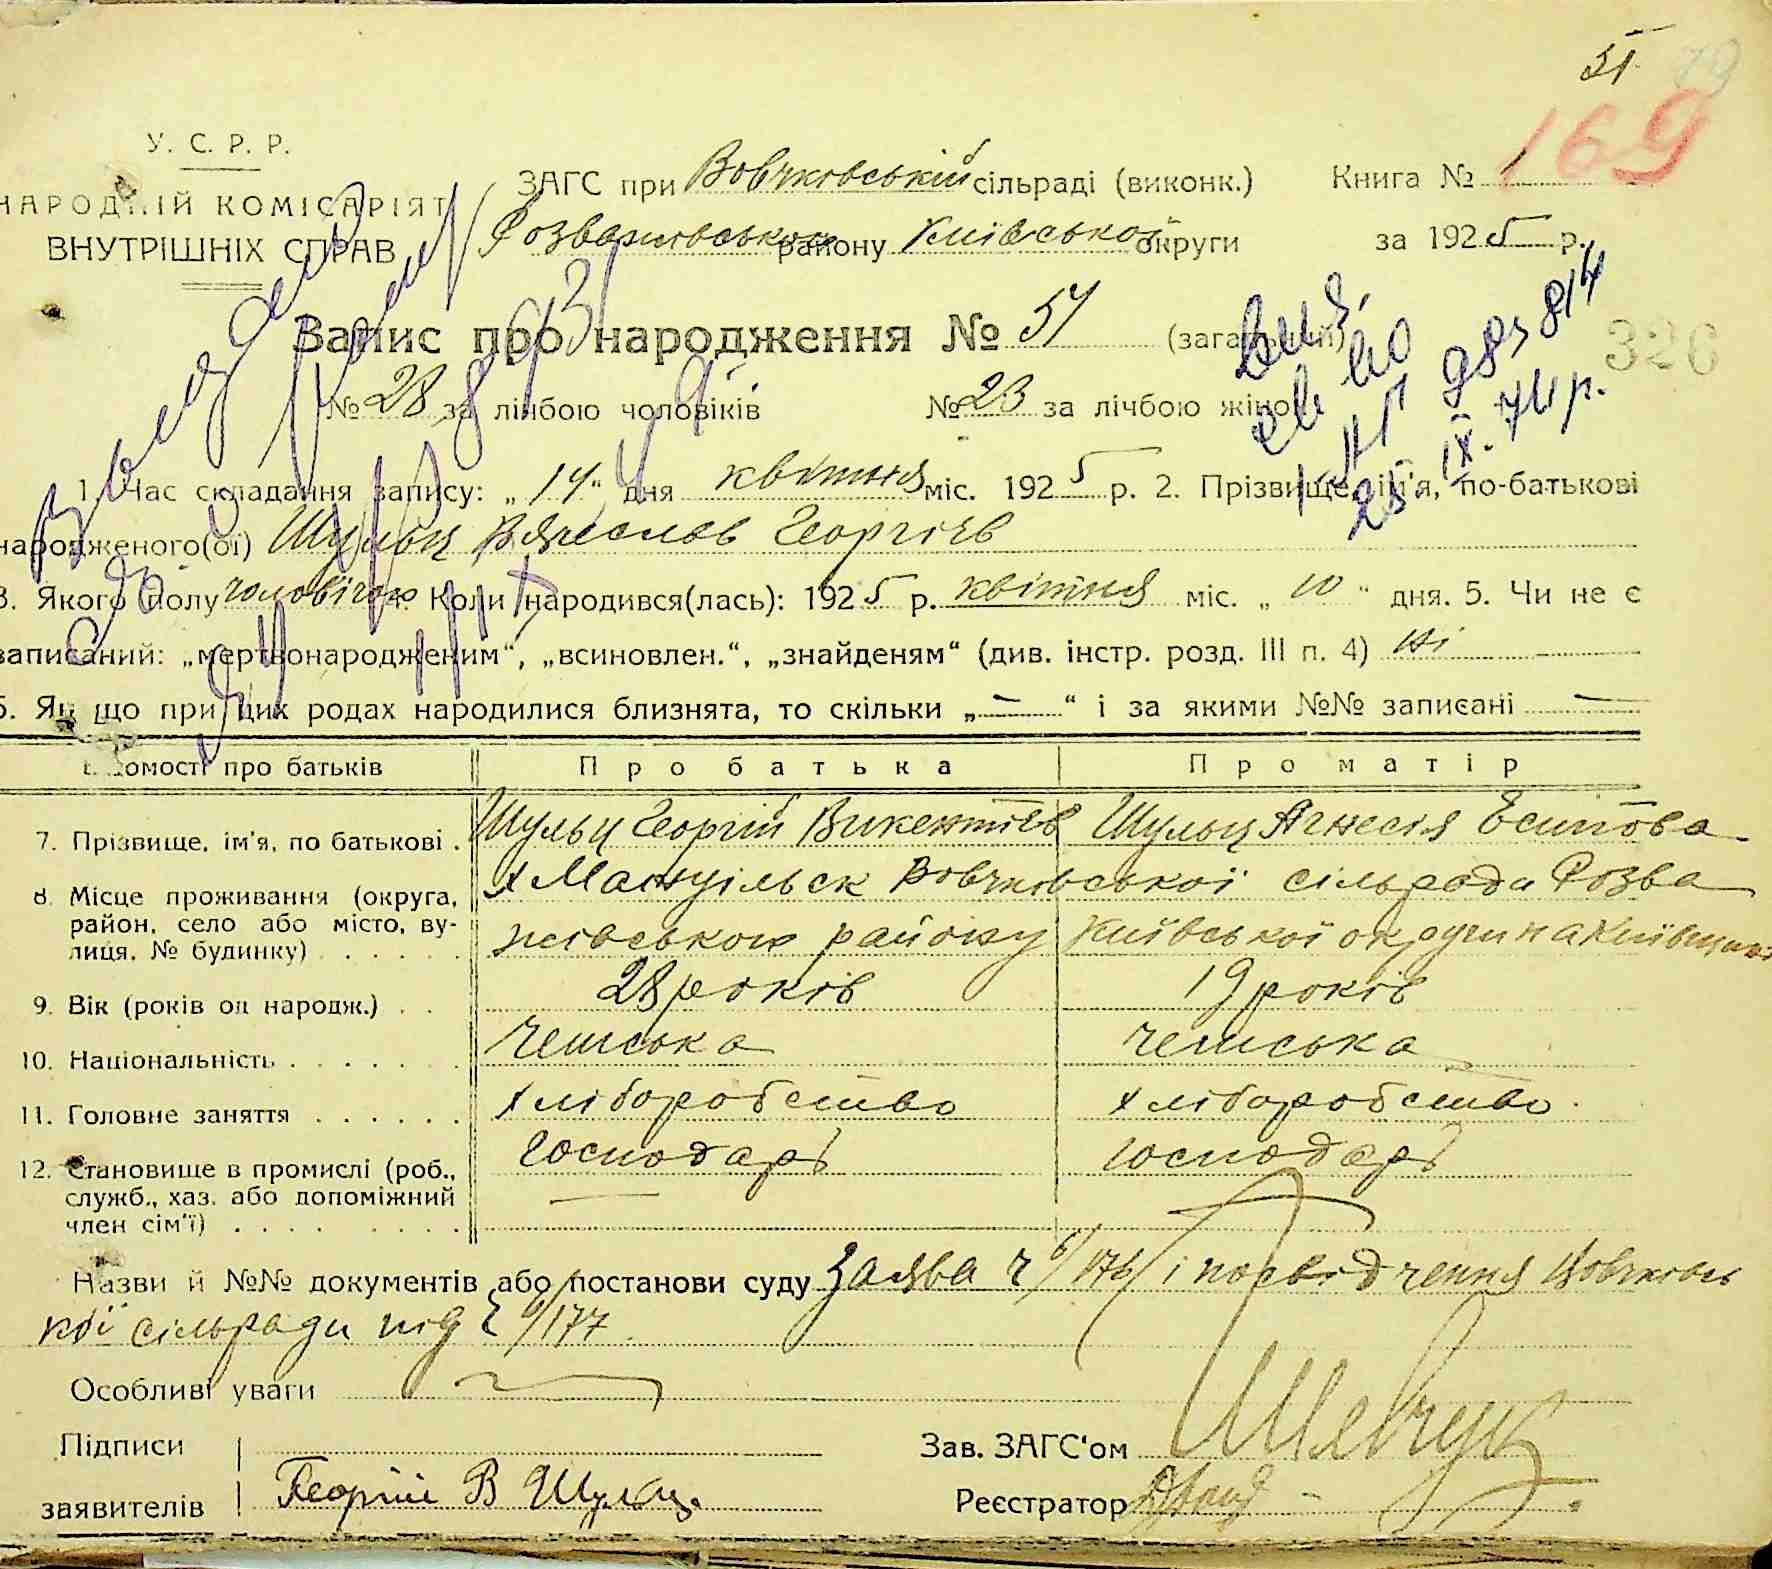 51 79
169
У. С. Р. Р.
НАРОДНІЙ КОМІСАРІЯТ
ВНУТРІШНІХ СПРАВ
ЗАГС при Вовчковській сільраді (виконк.) Книга № 1
Розважівського району Київської округи за 1925 р.
Запис про народження № 51 (загальний)
326
№ 28 за лічбою чоловіків № 23 за лічбою жіно
1. Час складання запису: „14“ дня квітня міс. 1925 р. 2. Прізвище, ім'я, по-батькові
народженого(ої) Шульц Вячеслав Георгієв
3. Якого полу чоловічого 4. Коли народився(лась): 1925 р. квітня міс. „10“ дня. 5. Чи не є
записаний: „мертвонародженим“, „всиновлен.“, „знайденям“ (див. інстр. розд. III п. 4) Ні
6. Як що при цих родах народилися близнята, то скільки „—“ і за якими №№ записані —
Відомості про батьків Про батька Про матір
7. Прізвище, ім'я, по батькові . Шульц Георгій Викентієв Шульц Агнесія Есипова
8. Місце проживання (округа, район, село або місто, вулиця, № будинку) х Мануільск Вовчківської сільради Розва
жівського району Київської округи на Київщині
9. Вік (років од народж.) . . 28 років 19 років
10. Національність . . . . . . . чешська чешська
11. Головне заняття . . . . . . хліборобство хліборобство
12. Становище в промислі (роб., служб., хаз. або допоміжний член сім'ї) . . . . . . . . . господарь господарь
Назви й №№ документів або постанови суду Заява ч 6/176 і посвідчення Вовчківсь
кої сільради під ч 6/177
Особливі уваги
Підписи
заявителів Георгій В Шульц
Зав. ЗАГС'ом Шевчук
Реєстратор